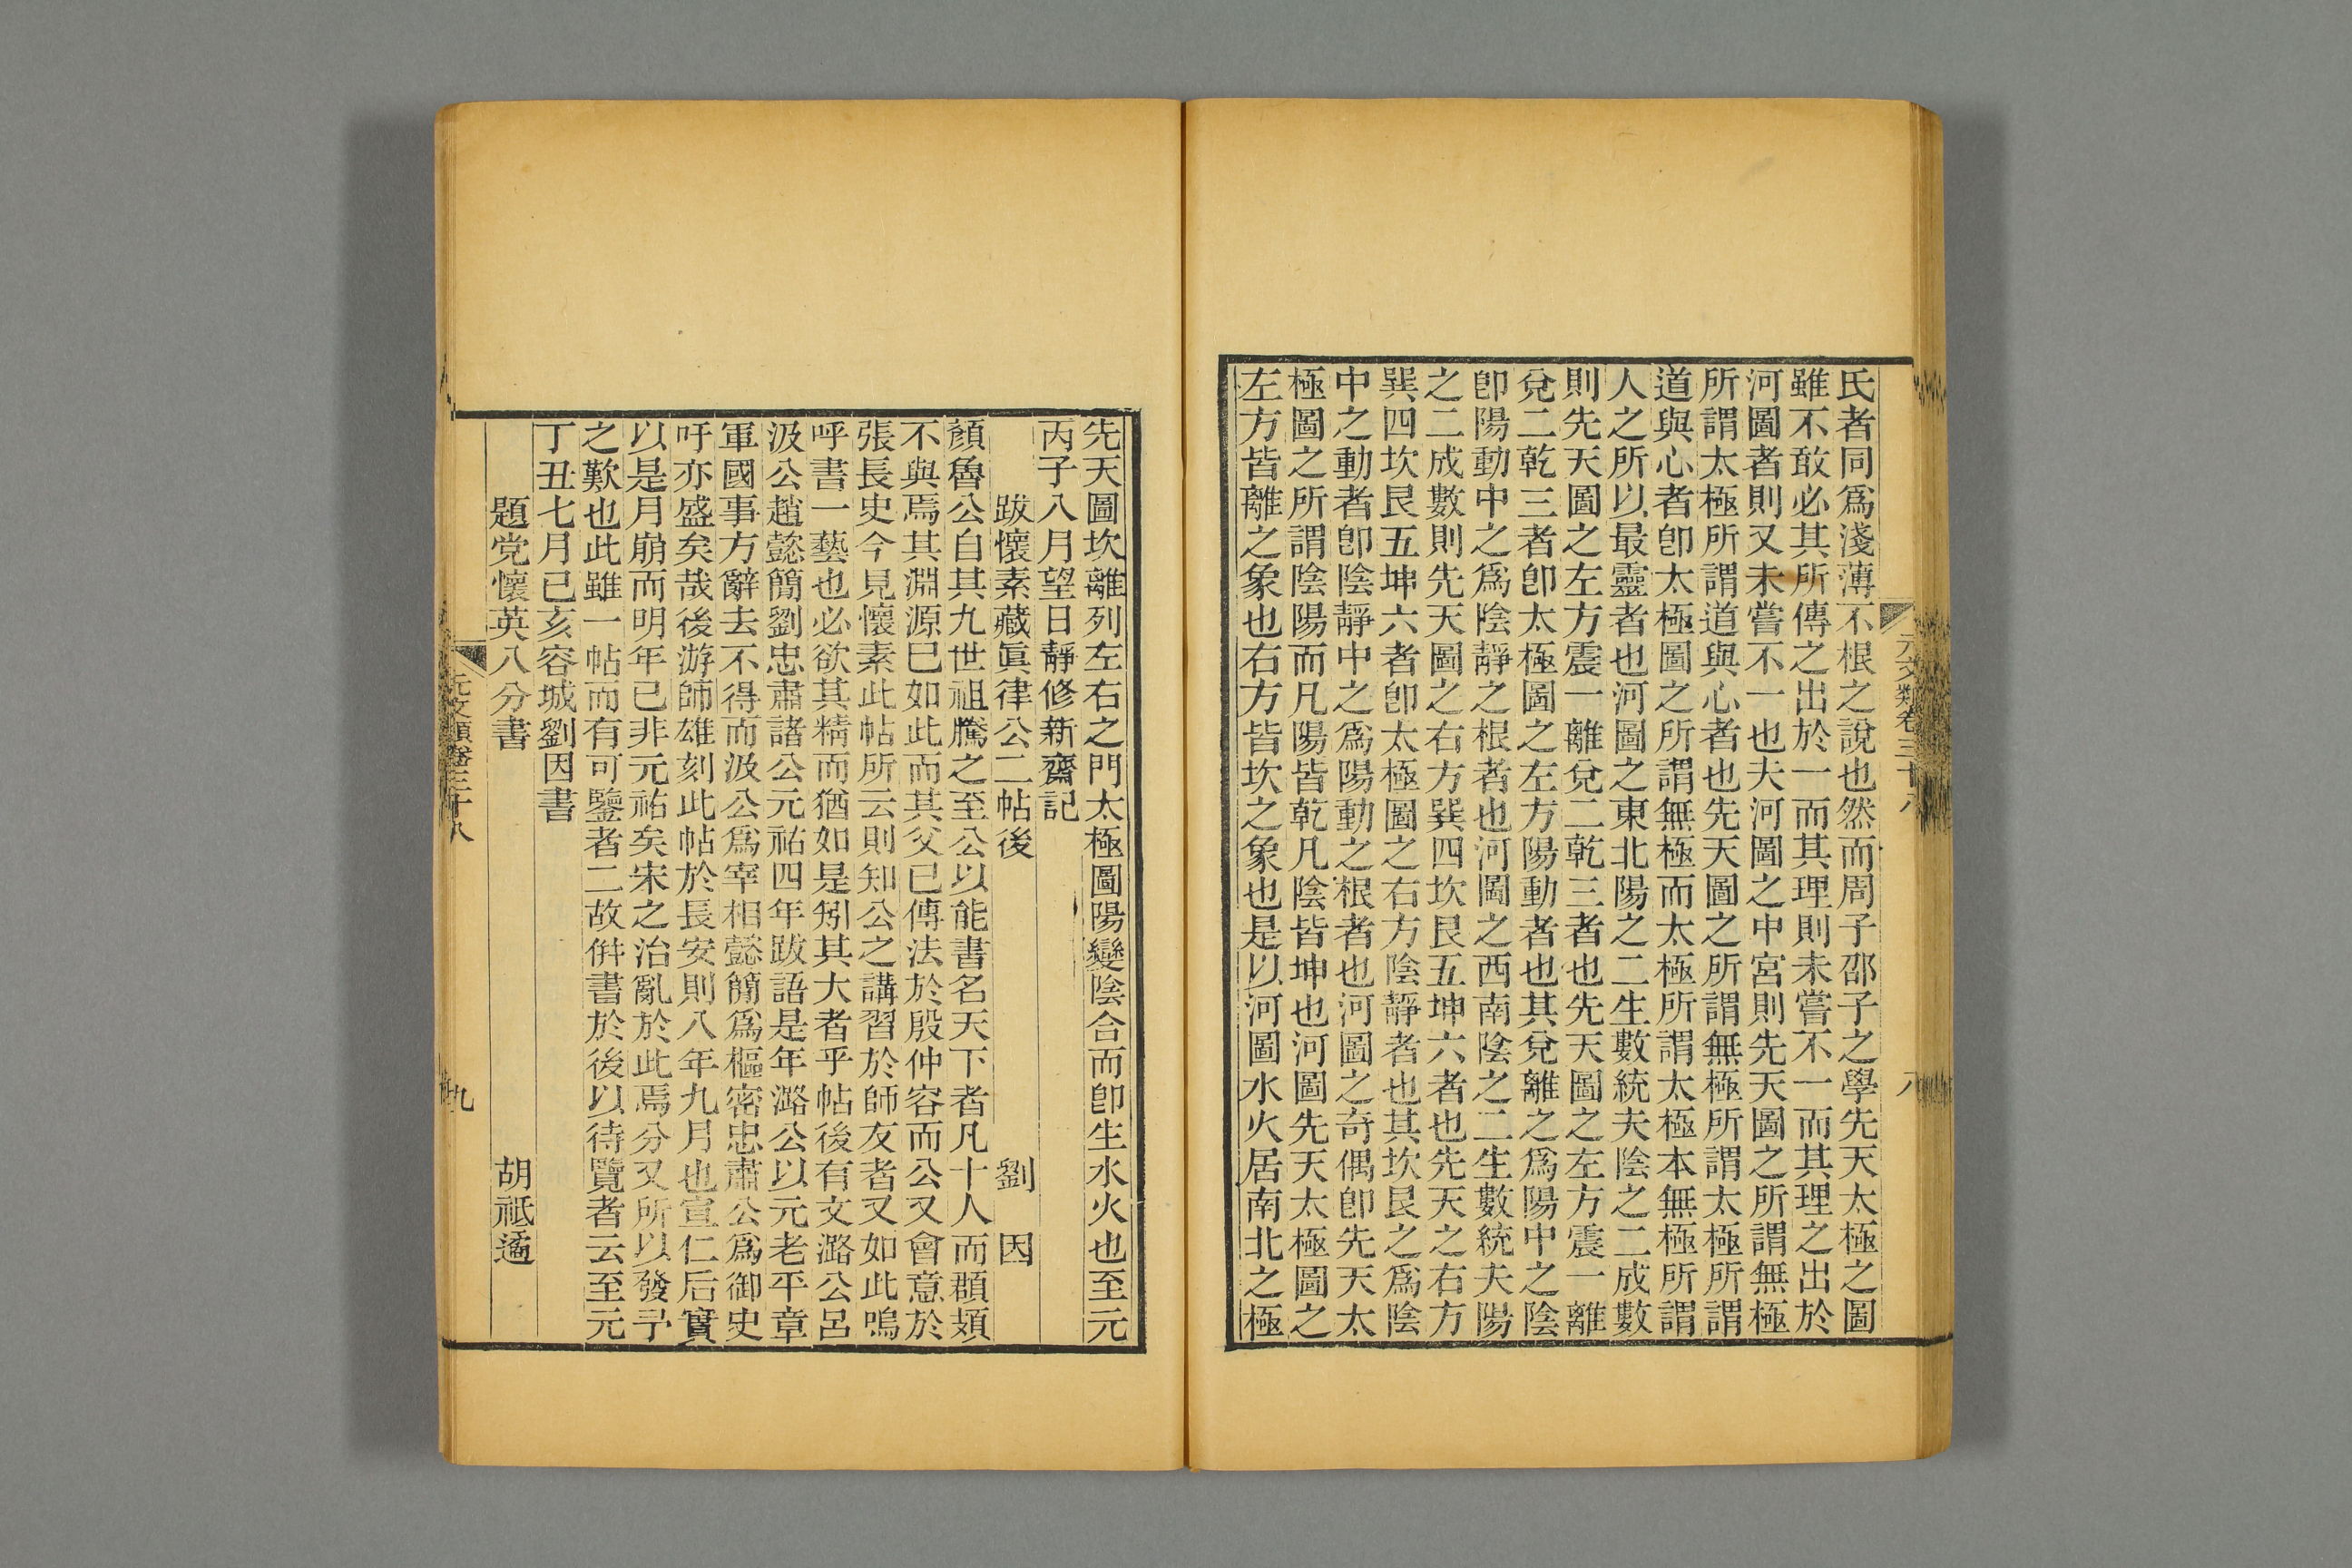 元文類卷三十八
八
氏者同爲淺薄不根之說也然而周子邵子之學先天太極之圖
雖不敢必其所傳之出於一而其理則未嘗不一而其理之出於
河圖者則又未嘗不一也夫河圖之中宮則先天圖之所謂無極
所謂太極所謂道與心者也先天圖之所謂無極所謂太極所謂
道與心者卽太極圖之所謂無極而太極所謂太極本無極所謂
人之所以最靈者也河圖之東北陽之二生數統夫陰之二成數
則先天圖之左方震一離兌二乾三者也先天圖之左方震一離
兌二乾三者卽太極圖之左方陽動者也其兌離之爲陽中之陰
卽陽動中之爲陰靜之根者也河圖之西南陰之二生數統夫陽
之二成數則先天圖之右方巽四坎艮五坤六者也先天之右方
巽四坎艮五坤六者卽太極圖之右方陰靜者也其坎艮之爲陰
中之動者卽陰靜中之爲陽動之根者也河圖之奇偶卽先天太
極圖之所謂陰陽而凡陽皆乾凡陰皆坤也河圖先天太極圖之
左方皆離之象也右方皆坎之象也是以河圖水火居南北之極
先天圖坎離列左右之門太極圖陽變陰合而卽生水火也至元
丙子八月望日靜修新齋記
跋懷素藏眞律公二帖後　劉　因
顏魯公自其九世祖騰之至公以能書名天下者凡十人而頵頍
不與焉其淵源已如此而其父已傳法於殷仲容而公又會意於
張長史今見懷素此帖所云則知公之講習於師友者又如此嗚
呼書一藝也必欲其精而猶如是矧其大者乎帖後有文潞公呂
汲公趙懿簡劉忠肅諸公元祐四年跋語是年潞公以元老平章
軍國事方辭去不得而汲公爲宰相懿簡爲樞密忠肅公爲御史
吁亦盛矣哉後游師雄刻此帖於長安則八年九月也宣仁后實
以是月崩而明年已非元祐矣宋之治亂於此焉分又所以發予
之歎也此雖一帖而有可鑒者二故倂書於後以待覽者云至元
丁丑七月已亥容城劉因書
題党懷英八分書　胡祗遹
元文類卷三十八
九